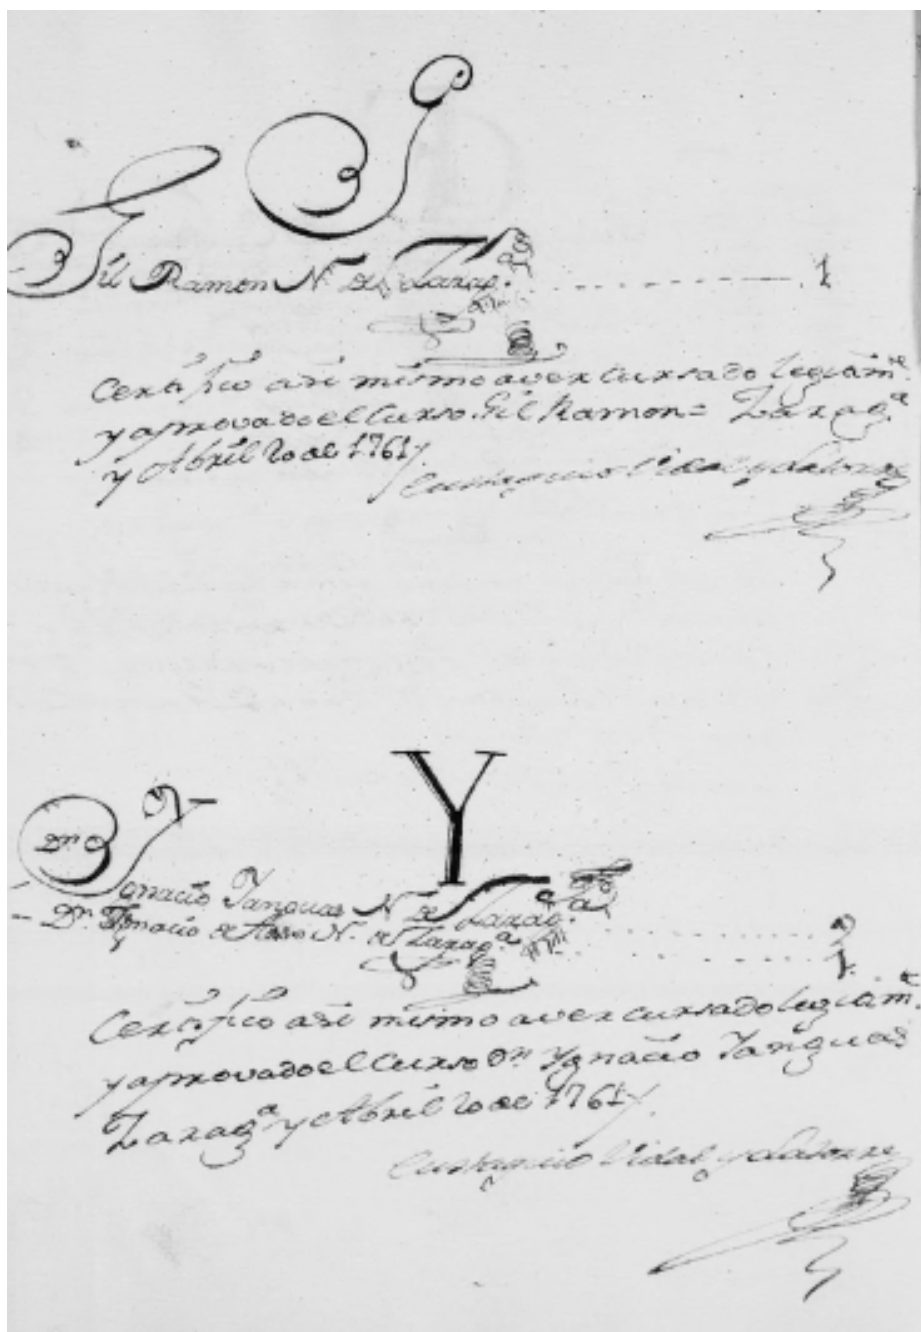 G
Gil Ramon N. de Zarag.ª 1
Certifico asi mismo aver cursado legiam.te
y aprovado el Curso Gil Ramon = Zarag.ª
y Abril 20 de 1761
Eustaquio Vidal y Latorre
Y
D.n Ygnacio Yanguas N. de Zarag.ª 2
D.n Ygnacio de Asso N. de Zarag.ª 1
Certifico asi mismo aver cursado legiam.te
y aprovado el Curso D.n Ygnacio Yanguas
Zarag.ª y Abril 20 de 1761
Eustaquio Vidal y Latorre